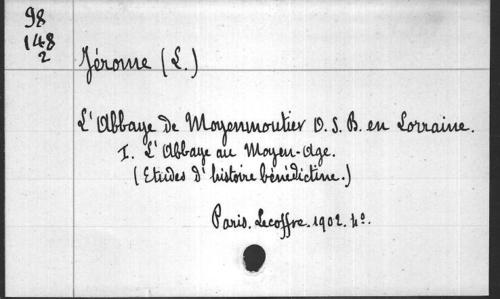 98
148
2
Jérome (L.)
L'Abbaye de Moyenmoutier O.S.B. en Lorraine.
I. L'Abbaye au Moyen-Age.
(Etudes d'histoire bénédictine.)
Paris. Lecoffre. 1902. 4º.